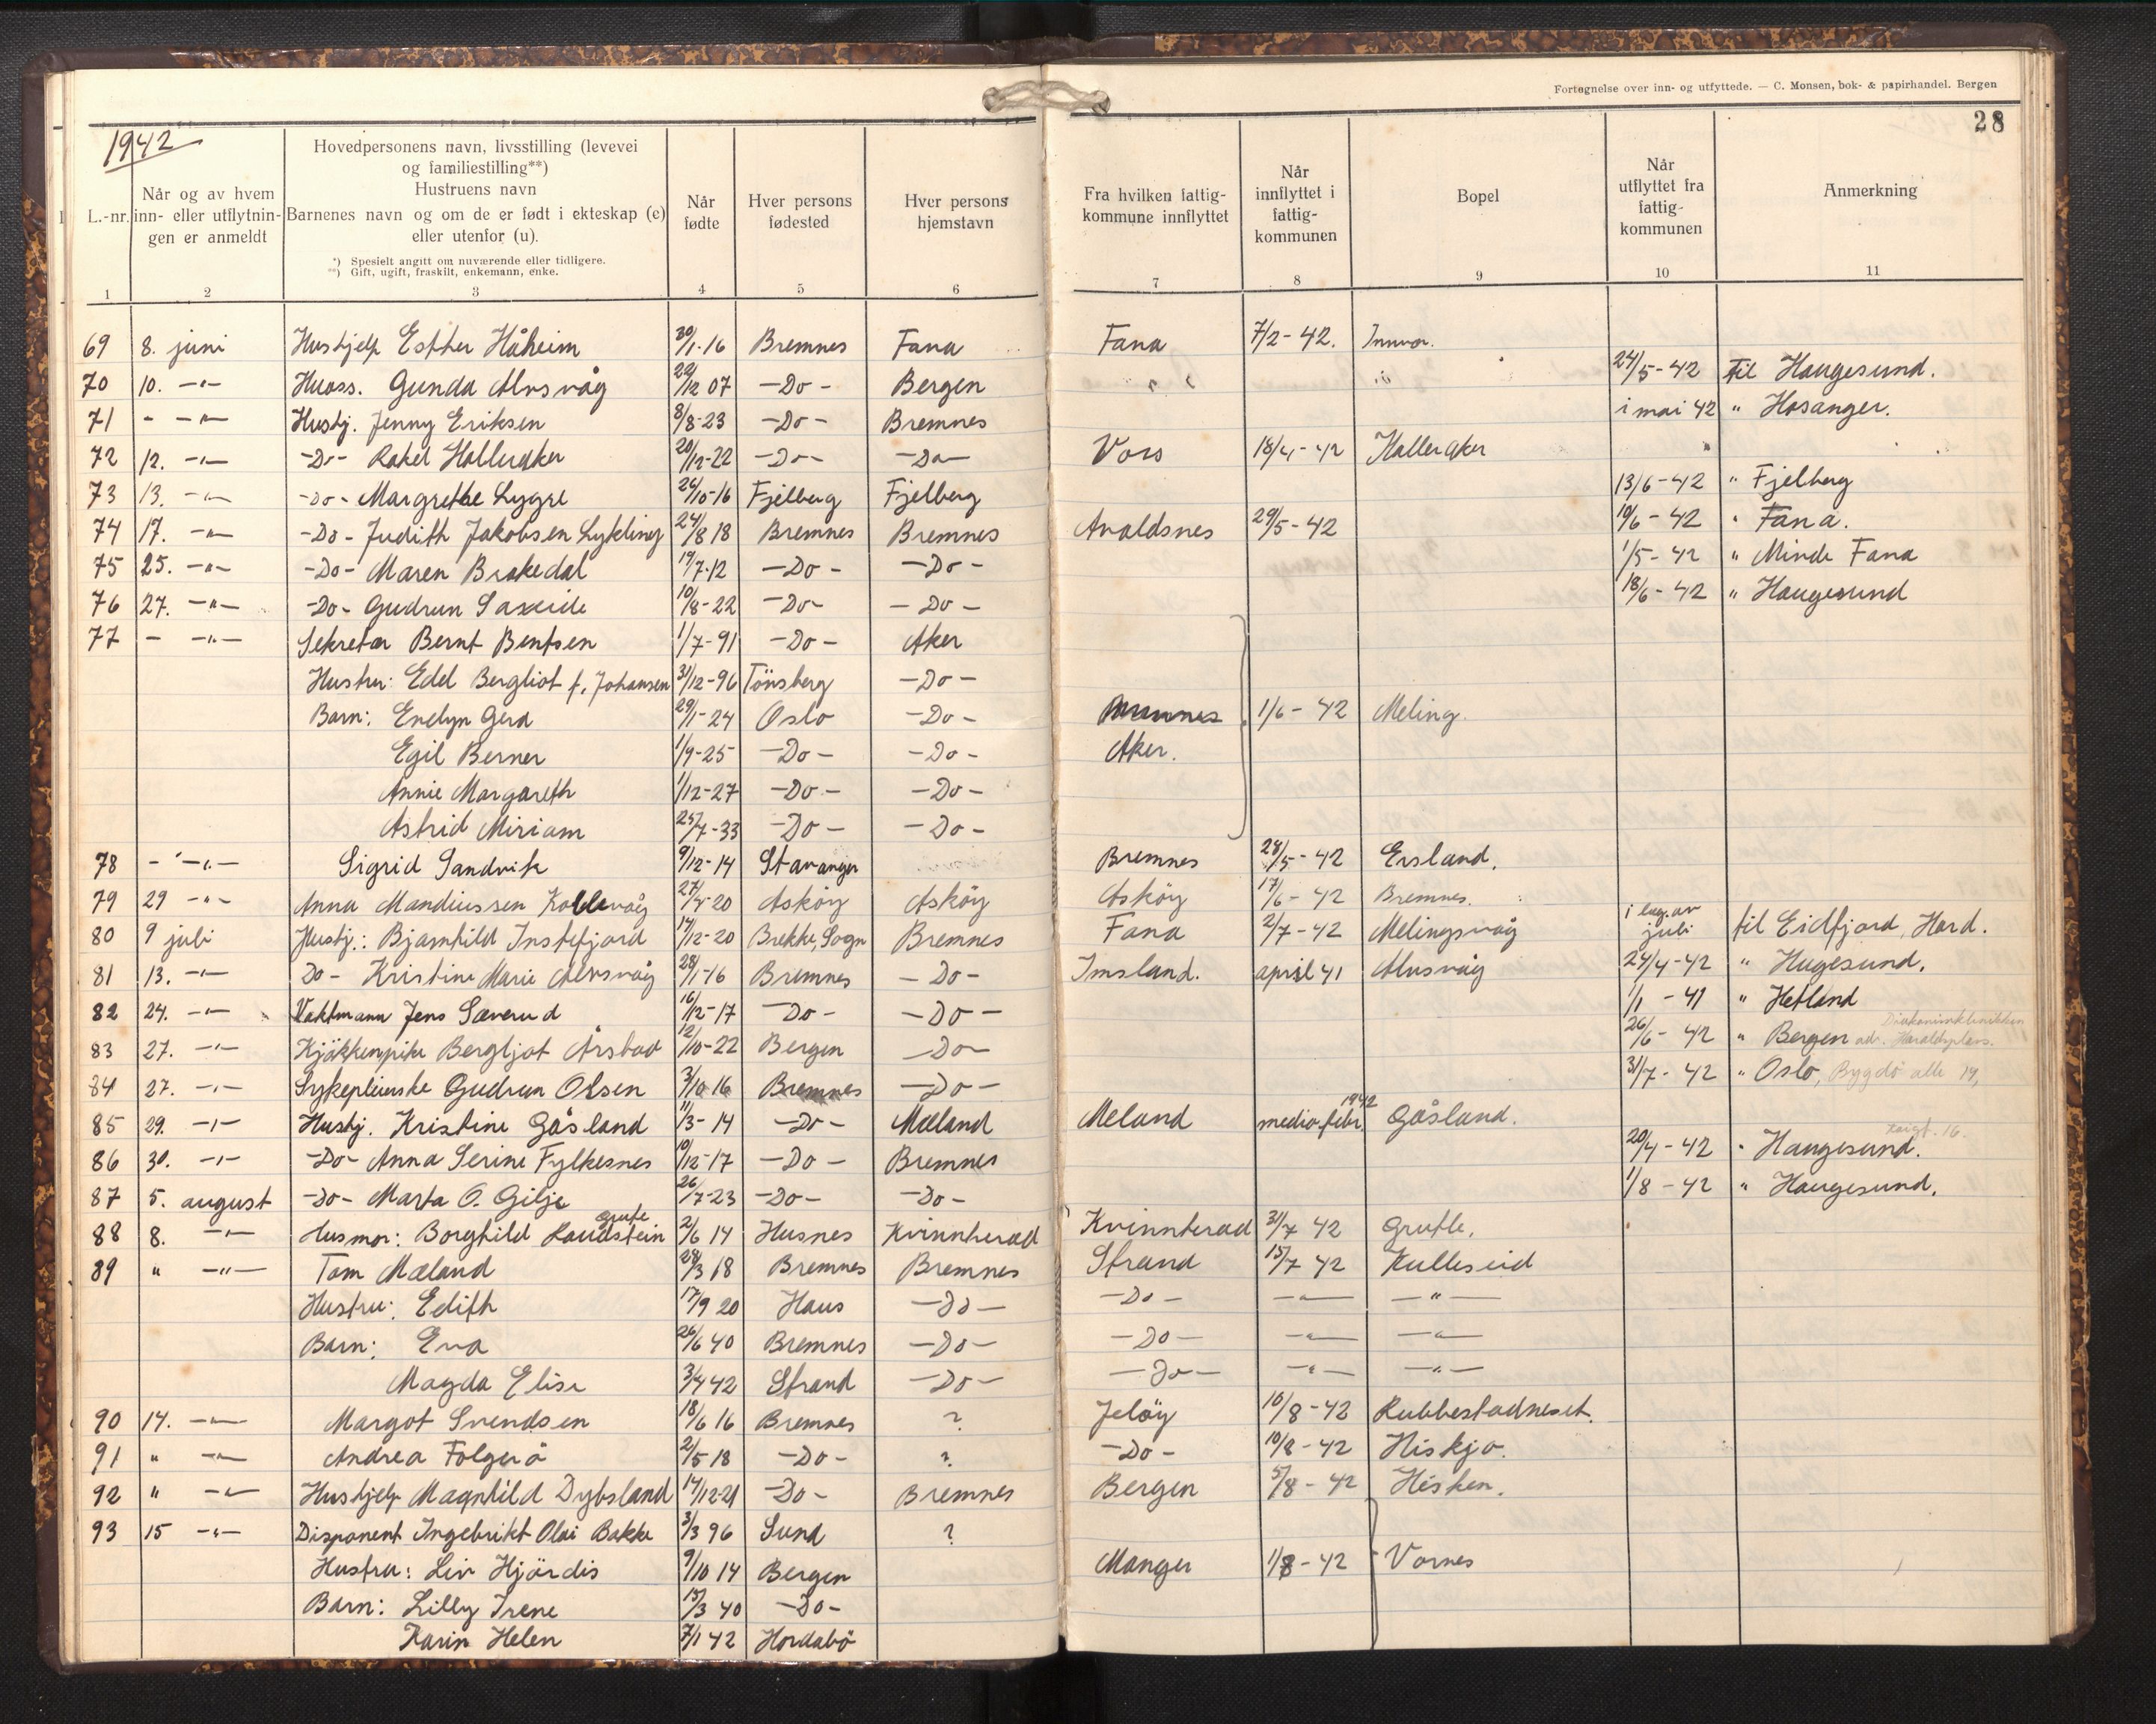 Fortegnelse over inn- og utflyttede. — C. Monsen, bok- & papirhandel. Bergen
28
1942
L.-nr.
Når og av hvem inn- eller utflytnin- gen er anmeldt
Hovedpersonens navn, livsstilling (levevei
og familiestilling**)
Hustruens navn
Barnenes navn og om de er født i ekteskap (e)
eller utenfor (u).
*) Spesielt angitt om nuværende eller tidligere.
**) Gift, ugift, fraskilt, enkemann, enke.
Når fødte
Hver persons fødested
Hver persons hjemstavn
Fra hvilken fattig- kommune innflyttet
Når innflyttet i fattig- kommunen
Bopel
Når utflyttet fra fattig- kommunen
Anmerkning
1 2 3 4 5 6 7 8 9 10 11
69 8. juni Hushjelp Esther Håheim 30/1-16 Bremnes Fana Fana 7/2-42. Innvær.
70 10. -"- Huass. Gunda Alvsvåg 29/12 07 -Do- Bergen 24/5-42 til Haugesund.
71 - -"- Hushj. Jenny Eriksen 8/8-23 -Do- Bremnes i mai 42 " Hosanger.
72 12. -"- -Do- Rakel Halleraker 20/12-22 -Do- -Do- Voss 18/4-42 Halleraker
73 13. -"- -Do- Margrethe Lygre 26/10-16 Fjelberg Fjelberg 13/6-42 " Fjelberg
74 17. -"- -Do- Judith Jakobsen Lykling 24/8 18 Bremnes Bremnes Avaldsnes 29/5-42 19/6-42 " Fana.
75 25. -"- -Do- Maren Brakedal 19/7-12 -Do- -Do- 1/5-42 " Minde Fana
76 27. -"- -Do- Gudrun Saxeide 10/8-22 -Do- -Do- 18/6-42 " Haugesund
77 - -"- Sekretær Bernt Bentsen 1/7-91 -Do- Aker
Hustru: Edel Bergliot f. Johansen 31/12-96 Tönsberg -Do-
Barn: Evelyn Gerd 29/1-24 Oslo -Do- Bremnes 1/6-42 Meling.
Egil Berner 1/9-25 -Do- -Do- Aker.
Annie Margareth 1/12-27 -Do- -Do-
Astrid Miriam 25/7-33 -Do- -Do-
78 - -"- Sigrid Sandvik 9/12-14 Stavanger Bremnes 28/5-42 Ersland.
79 29 -"- Anna Mandiussen Kollevåg 27/4-20 Asköy Asköy Asköy 17/6-42 Bremnes.
80 9 juli Hushj.: Bjarnhild Instefjord 17/12-20 Brekke, Sogn Bremnes Fana 2/7-42 Melingsvåg i beg. av juli til Eidfjord, Hard.
81 13. -"- Do- Kristine Marie Alvsvåg 28/1-16 Bremnes -Do- Imsland. april 41 Alvsvåg 24/4-42 " Hugesund.
82 24. -"- Vaktmann Jens Sæverud 16/12-17 -Do- -Do- 1/1-41 " Hetland
83 27. -"- Kjökkenpike Bergljot Årstad 12/10-22 Bergen -Do- 26/6-42 " Bergen adr. Haraldsplass.
84 27. -"- Sykepleierske Gudrun Olsen 3/10 16 Bremnes -Do- 31/7-42 " Oslo, Bygdö alle 19,
85 29. -"- Hushj. Kristine Gåsland 11/3-14 -Do- Mæland Meland medio febr. 1942 Gåsland.
86 30. -"- -Do- Anna Serine Fylkesnes 10/12-17 -Do- Bremnes 20/4-42 " Haugesund.
87 5. august -Do- Marta O. Gilje 26/7-23 -Do- -Do- 1/8-42 " Haugesund.
88 8. -"- Husmor: Borghild Raudstein grutle 2/6 14 Husnes Kvinnherad Kvinnherad 31/7 42 Grutle.
89 " -"- Tom Mæland 28/3 18 Bremnes Bremnes Strand 15/7 42 Kulleseid
Hustru: Edith 17/9 20 Haus -Do- -Do- -"- -"-
Barn: Eva 26/6 40 Bremnes -Do- -Do- -"- -"-
Magda Elise 3/4 42 Strand -Do- -Do- -"- -"-
90 14. -"- Margot Svendsen 18/6 16 Bremnes ? Jelöy 10/8-42 Rubbestadneset.
91 " -"- Andrea Folgerö 2/5 18 -Do- ? -Do- 10/8-42 Hiskjo.
92 " -"- Hushjelp Magnhild Dybsland 14/12-21 -Do- Bremnes Bergen 5/8-42 Hisken.
93 15 -"- Disponent Ingebrikt Olai Bakke 3/3 96 Sund ?
Hustru: Liv Hjördis 9/10 14 Bergen Manger 1/8-42 Vornes
Barn: Lilly Irene 15/3 40 -Do-
Karin Helen 7/1 42 Hordabö